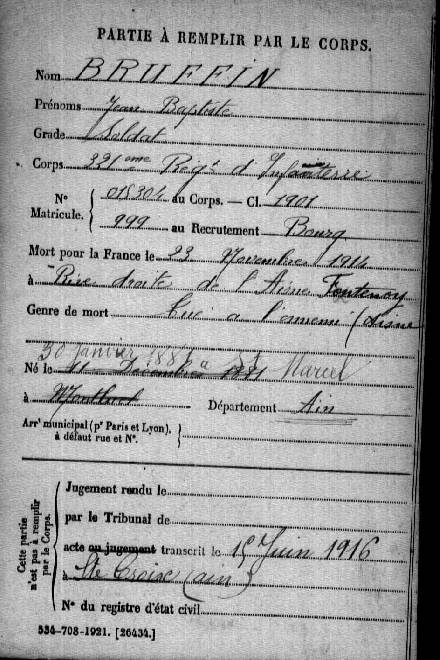 PARTIE À REMPLIR PAR LE CORPS.
Nom BRUFFIN
Prénoms Jean Baptiste
Grade Soldat
Corps 331eme Régt d'Infanterie
N° Matricule. 015304 au Corps. — Cl. 1901
999 au Recrutement Bourg
Mort pour la France le 23 Novembre 1914
à Rive droite de l'Aisne Fontenoy
Genre de mort Tué a l'ennemi (Aisne
30 janvier 1881 a St Marcel
Né le 11 Décembre 1881
à Montluel Département Ain
Arrt municipal (pr Paris et Lyon), à défaut rue et N°.
Cette partie n'est pas à remplir par le Corps.
Jugement rendu le
par le Tribunal de
acte ou jugement transcrit le 15 Juin 1916
à Ste Croix (ain)
N° du registre d'état civil
534-708-1921. [26434.]